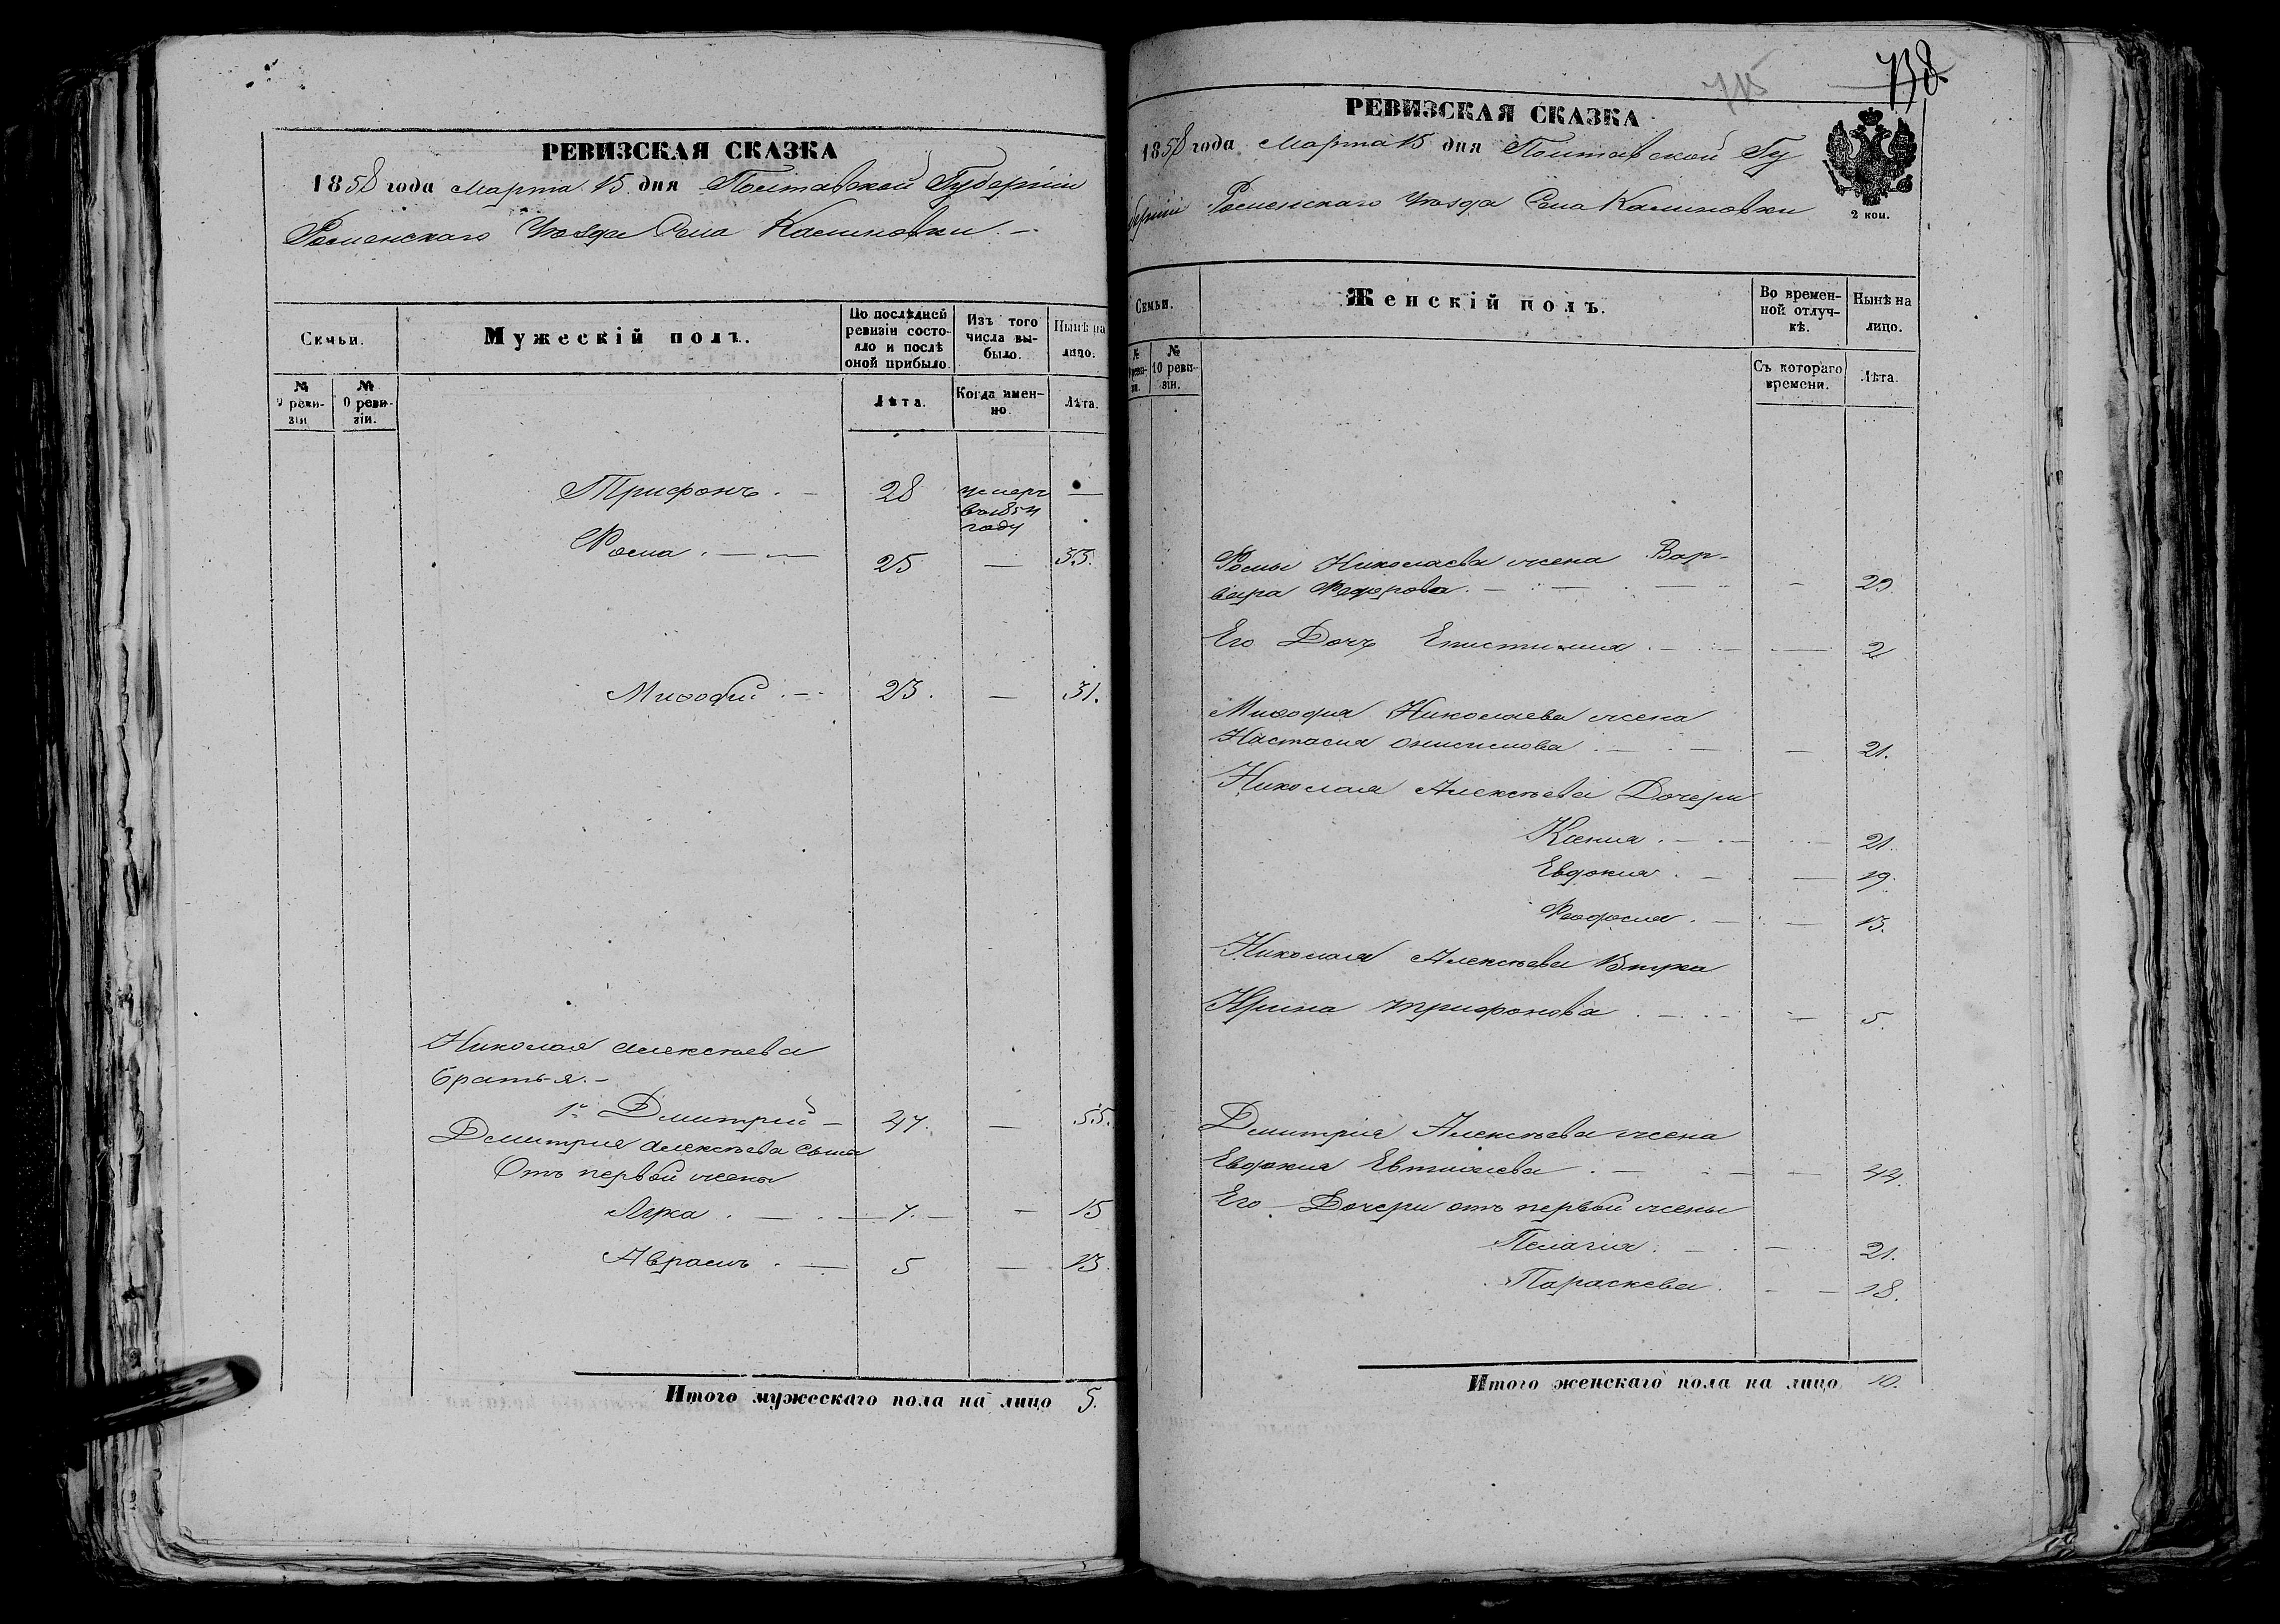 РЕВИЗСКАЯ СКАЗКА
1858 года Марта 15 дня Полтавской Губерніи
Роменскаго Уѣзда Села Калиновки. –
Семьи.
Мужескій полъ.
По послѣдней ревизіи состояло и послѣ оной прибыло.
Изъ того числа выбыло.
Нынѣ на лицо.
№ 9 ревизіи
№ 0 ревизіи.
Лѣта.
Когда именно.
Лѣта.
Трифонъ. – 28 умеръ —
въ 1854
году
Фома. — — 25 — 33.
Мифодій. — 23. — 31.
Николая Алексѣева
братья. –
1й Дмитрий – 47. — 55.
Дмитрия Алексѣева сыны
Отъ первой жены
Лука. — 7. — 15
Аврамъ. — 5 — 13.
Итого мужескаго пола на лицо 5.
715
738.
РЕВИЗСКАЯ СКАЗКА
1858 года Марта 15 дня Полтавской Гу
берніи Роменскаго Уѣзда Села Калиновки
2 коп.
Семьи.
Женскій полъ.
Во временной отлучкѣ.
Нынѣ на лицо.
№ 9 ревизіи.
№ 10 ревизіи.
Съ котораго времени.
Лѣта.
Фомы Николаева жена Вар-
вара Федорова. — — 29.
Его Дочь Епистимия. — — 2
Мифодия Николаева жена
Настасия Онисимова. — — 21.
Николая Алексѣева Дочери
Ксения. — — 21.
Евдокия. — — 19.
Феодосия. — — 13.
Николая Алексѣева Внука
Ирина Трифонова. — — 5.
Дмитрия Алексѣева жена
Евдокия Евтихиева. — — 44.
Его Дочери отъ первой жены
Пелагия. — — 21.
Параскева. — — 18.
Итого женскаго пола на лицо 10.